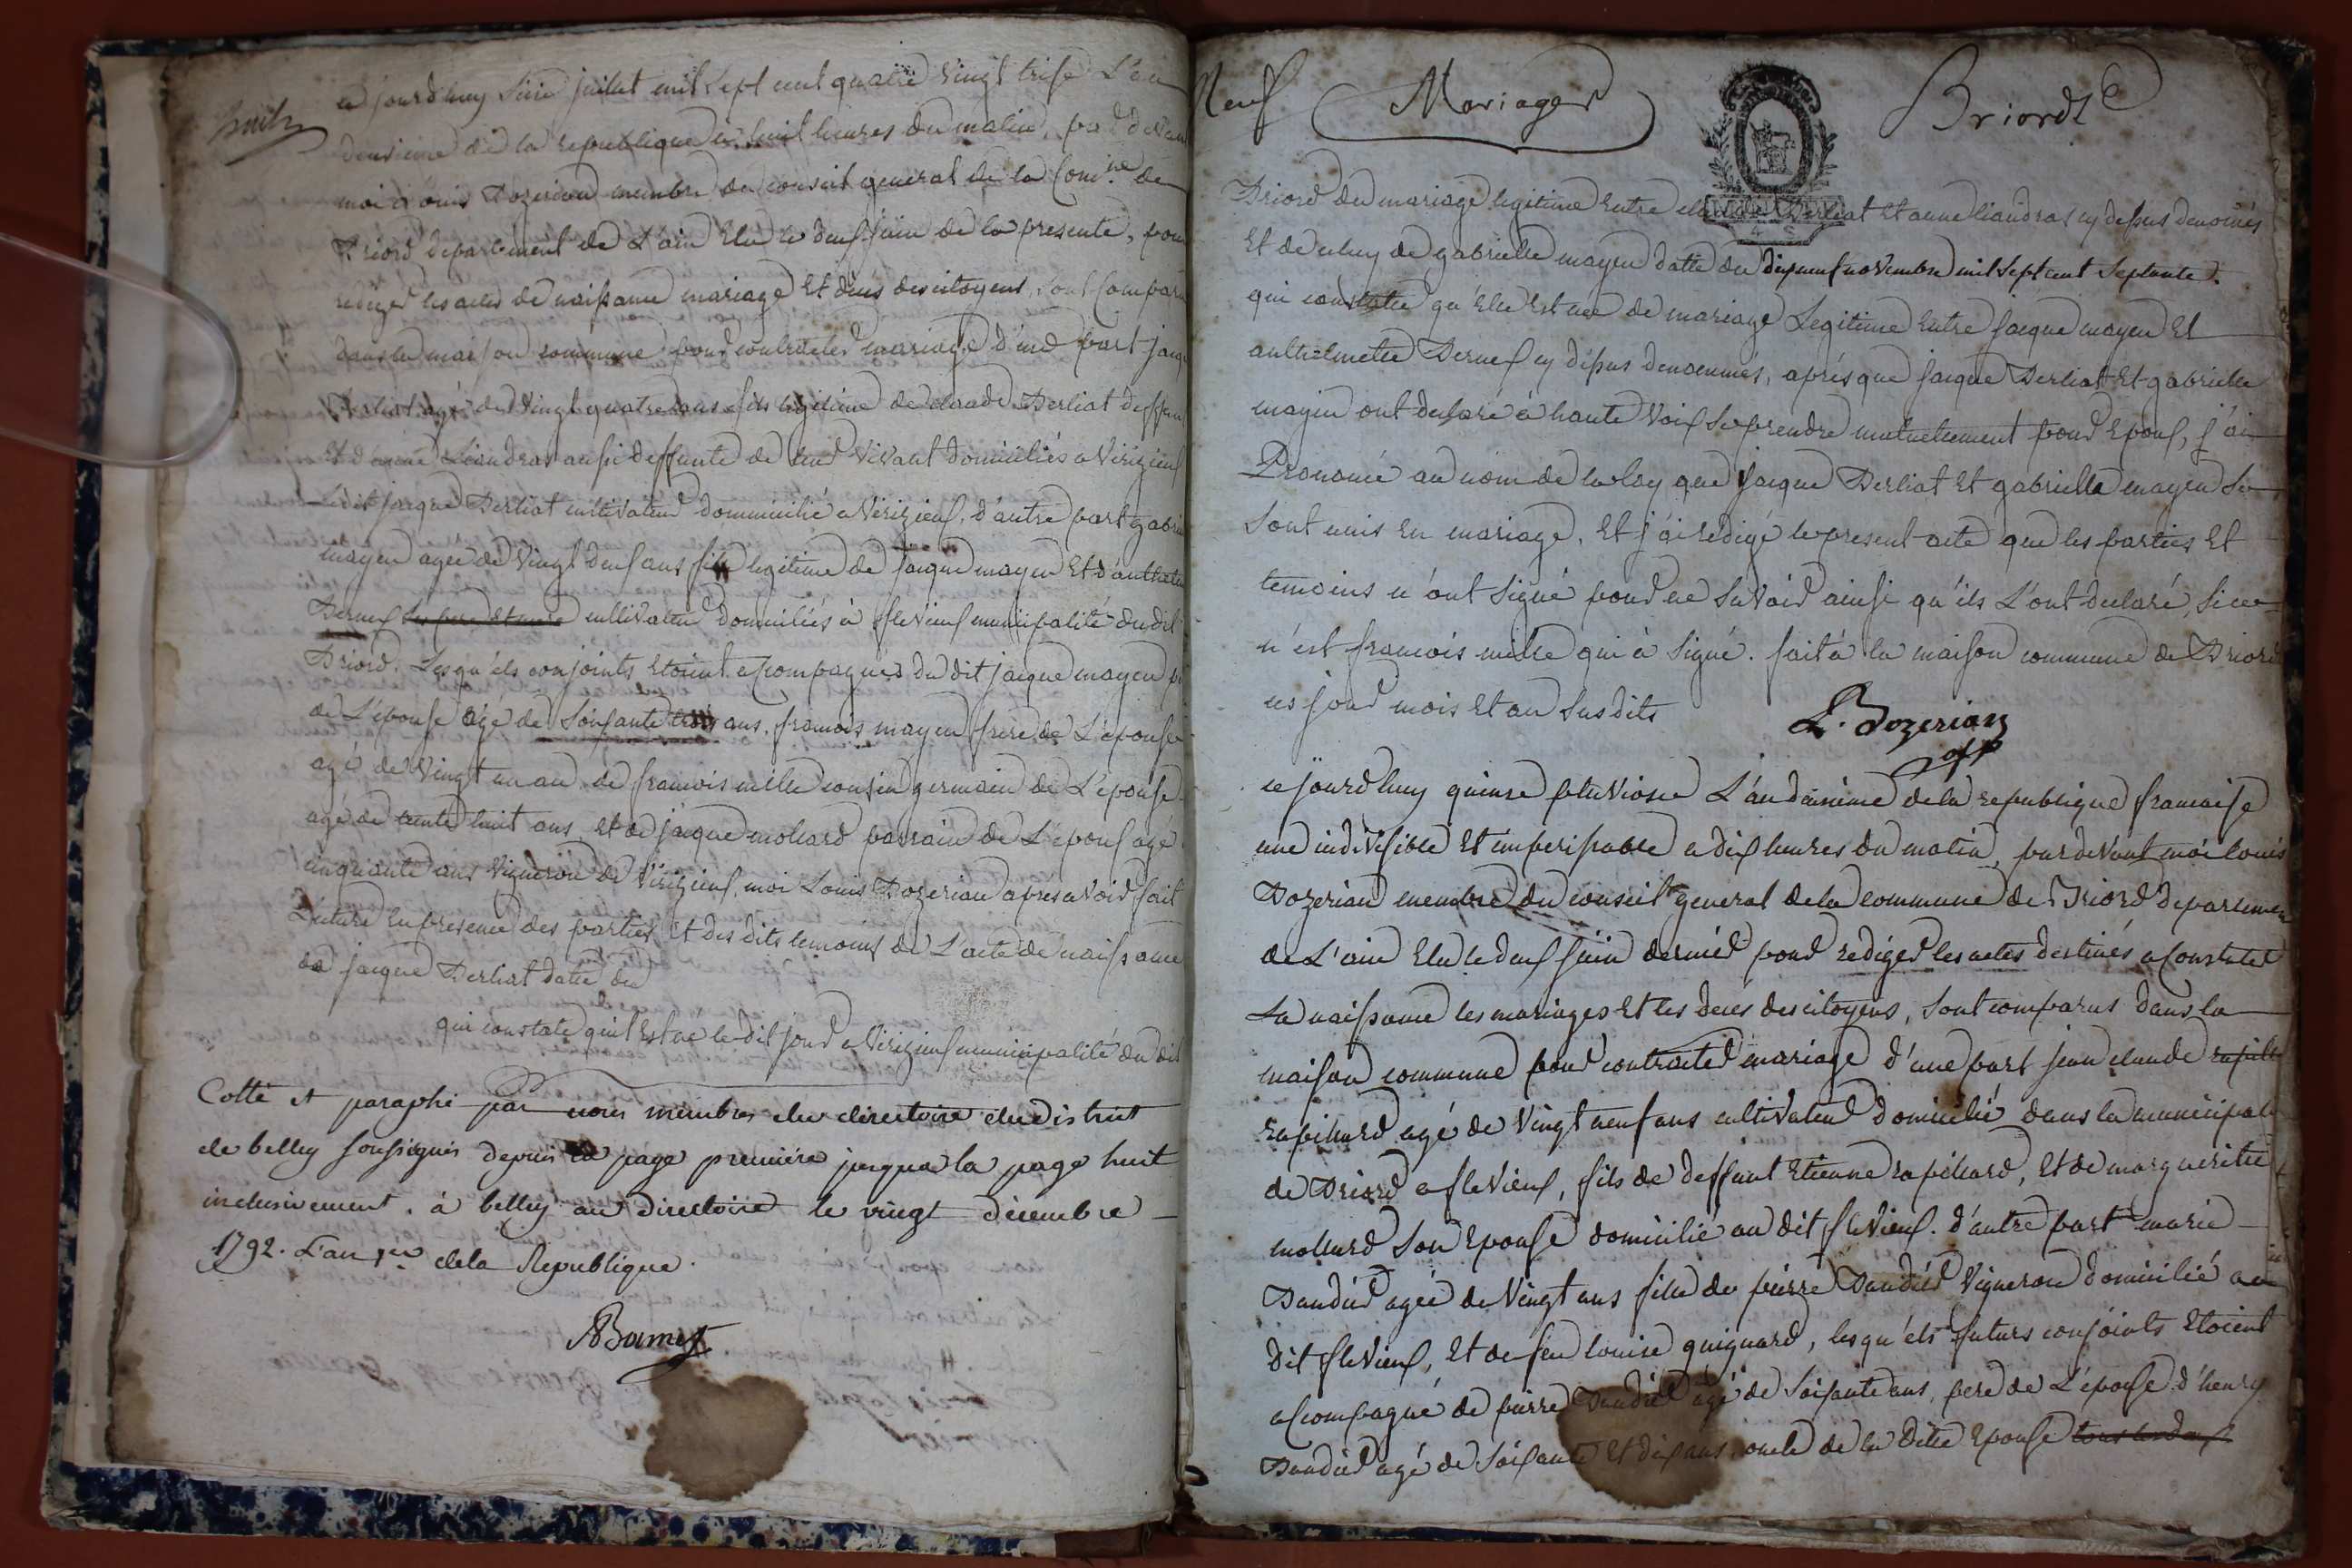 huit
ce jourdhuy Sixie juillet mil Sept cent quatre vingt trise L'an
deuxieme de la republique a huit heures du matin, par devant
moi Louis Bozerian membre du conseil general de la Com.ne de
Briord departement de L'ain Elu le deux juin de la presente, pour
rediger les actes de naissance mariage Et deces des citoyens, Sont Comparu
dans la maison commune pour contracter mariage d'une part jacque
Berliat agé de Vingt quatre ans fils legitime de claude Berliat deffunt
Et d'anne Liandras aussi deffunte de leur Vivant domiciliés a Virizieux
Ledit jacque Berliat cultivateur dommicilié a Virizieux, d'autre part gabrie
mayen agée de Vingt deux ans fille legitime de jacque mayen Et d'anthelme
Berner Ses pere Et mere cultivateur domiciliés à flevieux municipalité du dit
Briord. Lesqu'els conjoints Etoient acompagnés du dit jacque mayen pe
de L'épouse agé de Soixante trois ans, francois mayen frere de L'épouse
agé de Vingt un an de francois mille cousin germain de L'épouse
agé de trente huit ans Et de jacque mollard parrain de L'epoux agé
cinquante ans Vigneron de Virizieux, moi Louis Bozerian apres avoir fait
Lecture En presence des parties Et des dits temoins de L'acte de naissance
de jacque Berliat datté du
qui constate qu'il Est né le dit jour a Virizieux municipalité du dit
Cotté et paraphé par nous membres du directoire du district
de belley soussignés depuis la page premiére jusqua la page huit
inclusivement. à belley au Directoire le vingt décembre
1792. L'an 1er de la Republique.
Neuf Mariages Briord
Briord du mariage legitime Entre claude Berliat Et anne liandras cy dessus denomés
Et de celuy de gabrielle mayen datté du dixneuf novembre mil Sept cent Septante.
qui constate qu'Elle Est née de mariage Legitime Entre jacque mayen Et
anthelmette Berner cy dessus denommés, aprés que jacque Berliat Et gabrielle
mayen ont declaré à haute Voix Se prendre mutuellement pour Epoux, j'ai
Prononcé au nom de la loy que jacque Berliat Et gabrielle mayen Se
Sont unis En mariage, Et j'ai redigé le present acte que les parties Et
temoins n'ont Signé pour ne Savoir ainsi qu'ils L'ont declaré, Si ce
n'est francois mille qui à Signé. fait à la maison commune de Briord
les jour mois Et an Susdits
L. Bozerian
off
ce jourdhuy quinze pluviose L'an deuxieme de la republique francaise
une indivisible Et imperissable a dix heures du matin, pardevant moi Louis
Bozerian membre du conseil general de la commune de Briord departemen
de L'ain Elu le deux juin dernier pour rediger les actes destinés a Constater
La naissance les mariages Et les deces des citoyens, Sont comparus dans la
maison commune pour contracter mariage d'une part jean claude rapill
rapillard agé de Vingt neuf ans cultivateur domicilié dans la municipal
de Briord a flevieux, fils de deffunt Etienne rapillard, Et de marguerite
mollard Son Epouse domicilié au dit flevieux. d'autre part marie
Dandid agée de Vingt ans fille de pierre Dandid Vigneron domicilié au
dit flevieux, Et de feu louise guignard, lesqu'els futurs conjoints Etoient
acompagné de pierre Dandid agé de Soixante ans, pere de L'épouse d'henry
Dandid agé de Soixante Et dix ans oncle de la ditte Epouse tous les deux